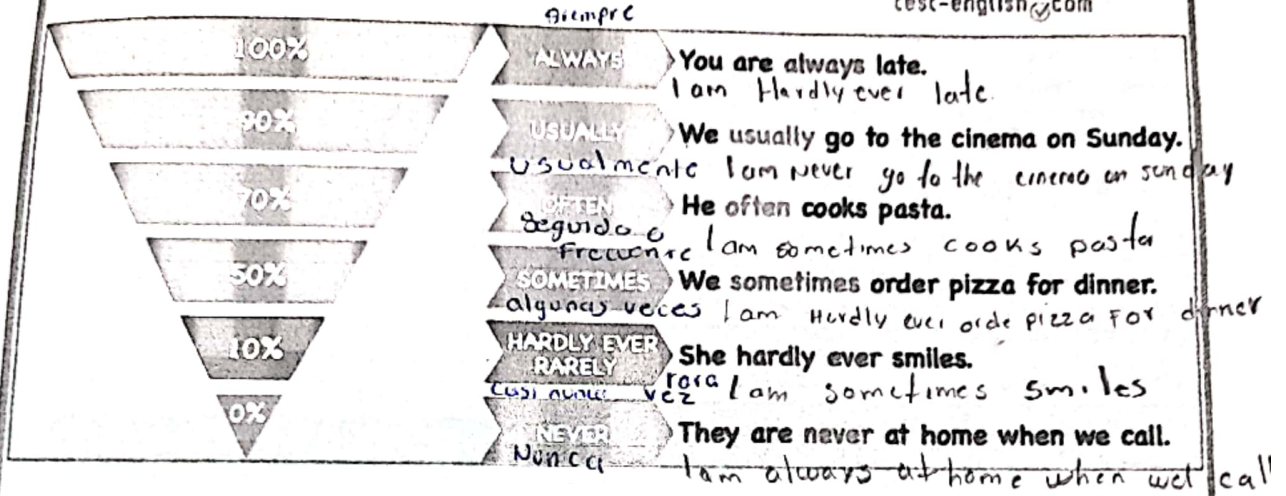 Siempre
test-english.com
100% ALWAYS You are always late.
I am Hardly ever late.
90% USUALLY We usually go to the cinema on Sunday.
usualmente I am Never go to the cinema on sunday
70% OFTEN He often cooks pasta.
Seguido o frecuente I am sometimes cooks pasta
50% SOMETIMES We sometimes order pizza for dinner.
algunas veces I am Hardly ever orde pizza For dinner
10% HARDLY EVER RARELY She hardly ever smiles.
Casi nunca rara vez I am sometimes smiles
0% NEVER They are never at home when we call.
Nunca I am always at home when we call